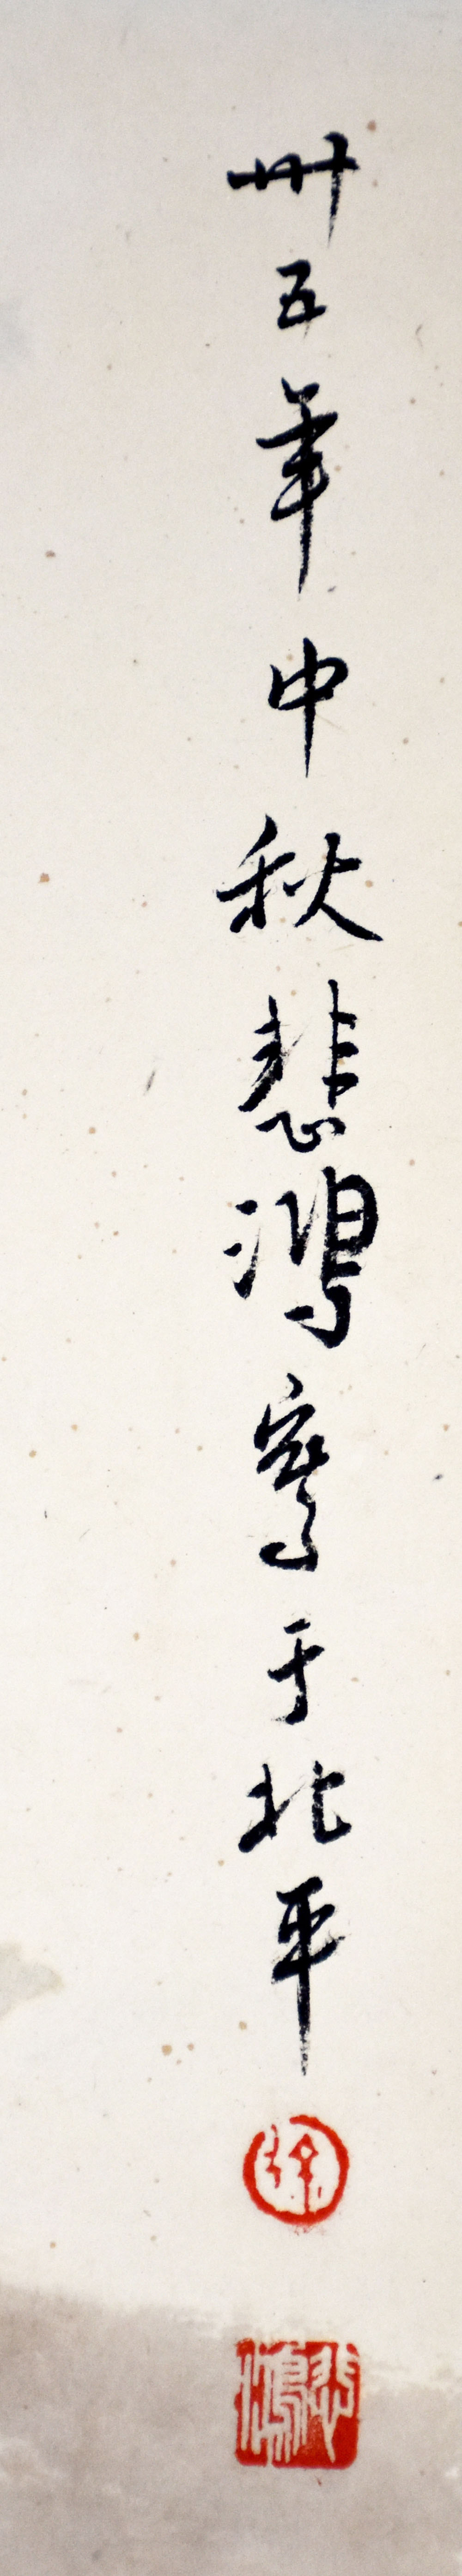 卅五年中秋悲鴻寫于北平
徐
悲鴻